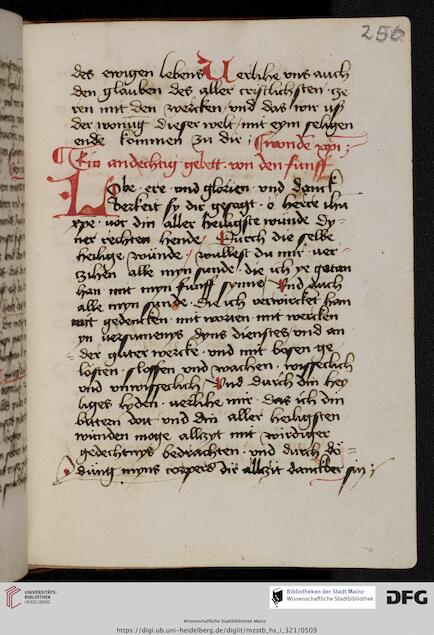 256
des ewigen lebens Verlihe vns auch
den glauben des aller cristlichsten · ze
ren mit den wercken / vnd das wir vß
der wonũg dieser welt / mit eym seligen
ende kommen zu dir ; wonde xpi ;
Ein andechtig gebett · von den funff
Lobe · ere · vnd glorien · vnd danck
berkeit sy dir gesagt · o herre ihu
xpe · vor din aller heiligste wunde dy-
ner rechten hende / Durch die selbe
heilige wunde / wullest du mir ver
zihen alle myn sunde · die ich ye getan
han mit myn funff synne / Vnd auch
alle myn sunde · die ich verwircket han
mit gedencken · mit worten · mit wercken
yn versumenys dyns dienstes / vnd an
der guter wercke · vnd mit bosen ge
losten · sloffen vnd wachen · wisseclich
vnd vnwisseclich / Vnd durch din hey
liges lyden · verlihe mir · das ich din
bittern dott vnd din aller heiligsten
wunden moge allzyt mit wirdiger
gedechtnys bedrachten · vnd durch dö-
dũng myns corpers dir allzit danckber sin ;
UNIVERSITÄTS-
BIBLIOTHEK
HEIDELBERG
Bibliotheken der Stadt Mainz
Wissenschaftliche Stadtbibliothek
DFG
Wissenschaftliche Stadtbibliothek Mainz
https://digi.ub.uni-heidelberg.de/diglit/mzstb_hs_i_321/0509